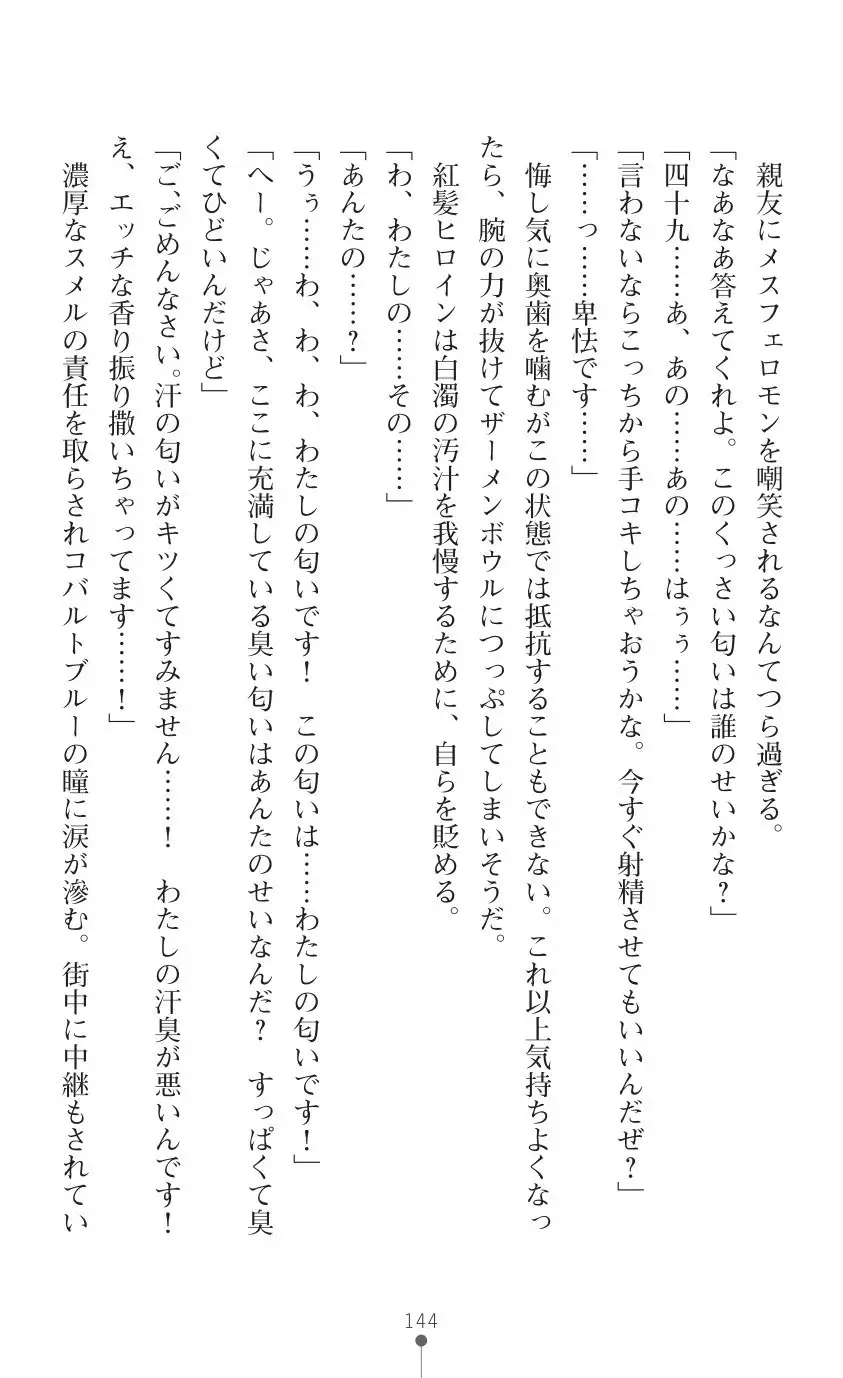 親友にメスフェロモンを嘲笑されるなんてつら過ぎる。
「なあなあ答えてくれよ。このくっさい匂いは誰のせいかな？」
「四十九……あ、あの……あの……はぅぅ……」
「言わないならこっちから手コキしちゃおうかな。今すぐ射精させてもいいんだぜ？」
「……っ……卑怯です……」
悔し気に奥歯を噛むがこの状態では抵抗することもできない。これ以上気持ちよくなっ
たら、腕の力が抜けてザーメンボウルにつっぷしてしまいそうだ。
紅髪ヒロインは白濁の汚汁を我慢するために、自らを貶める。
「わ、わたしの……その……」
「あんたの……？」
「うぅ……わ、わ、わ、わたしの匂いです！　この匂いは……わたしの匂いです！」
「へー。じゃあさ、ここに充満している臭い匂いはあんたのせいなんだ？　すっぱくて臭
くてひどいんだけど」
「ご、ごめんなさい。汗の匂いがキツくてすみません……！　わたしの汗臭が悪いんです！
え、エッチな香り振り撒いちゃってます……！」
濃厚なスメルの責任を取らされコバルトブルーの瞳に涙が滲む。街中に中継もされてい
144